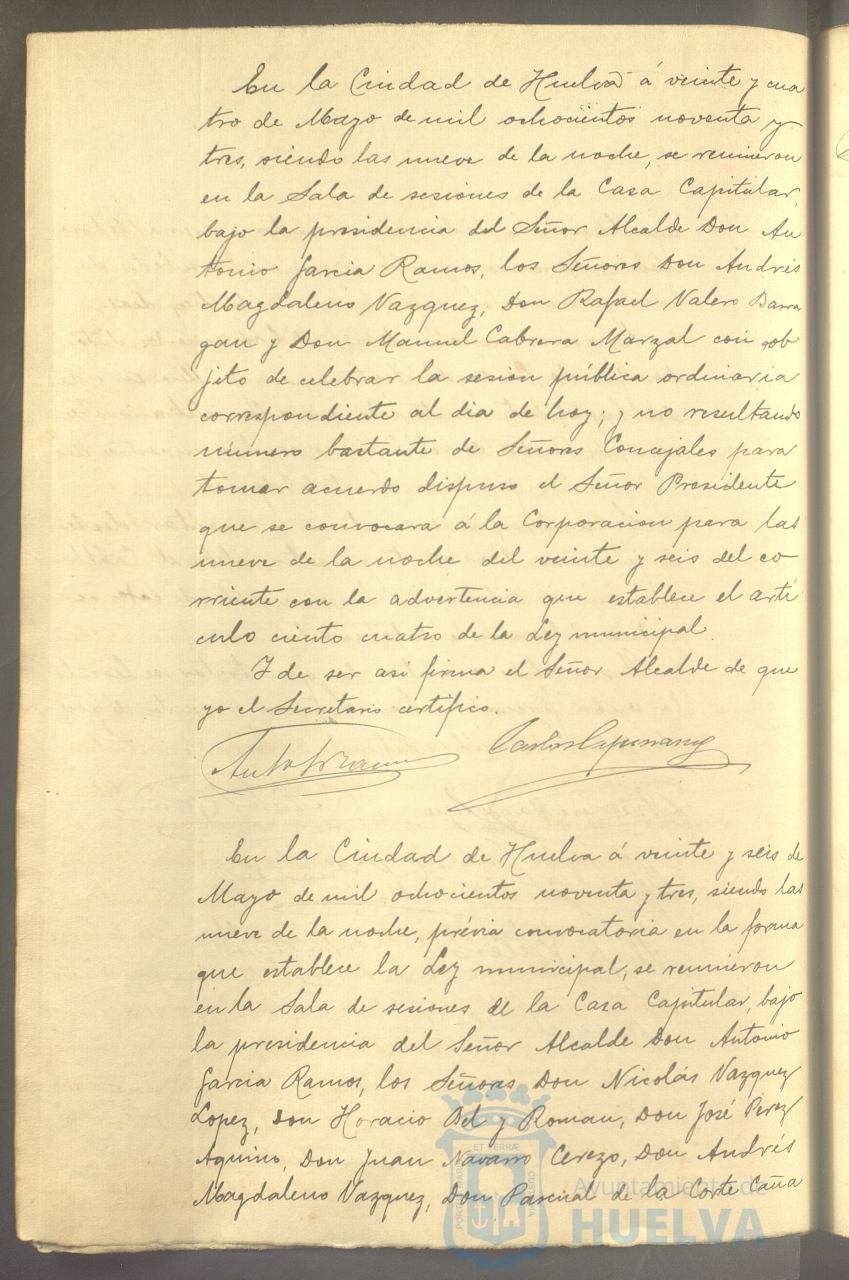 En la Ciudad de Huelva á veinte y cua
tro de Mayo de mil ochocientos noventa y
tres, siendo las nueve de la noche, se reunieron
en la Sala de sesiones de la Casa Capitular,
bajo la presidencia del Señor Alcalde Don An
tonio Garcia Ramos, los Señores Don Andrés
Magdaleno Vazquez, Don Rafael Valero Barra
gan y Don Manuel Cabrera Marzal con ob
jeto de celebrar la sesion pública ordinaria
correspondiente al dia de hoy; y no resultando
número bastante de Señores Concejales para
tomar acuerdo dispuso el Señor Presidente
que se convocara á la Corporacion para las
nueve de la noche del veinte y seis del co
rriente con la advertencia que establece el artí
culo ciento cuatro de la Ley municipal.
Y de ser asi firma el Señor Alcalde de que
yo el Secretario certifico.
En la Ciudad de Huelva á veinte y seis de
Mayo de mil ochocientos noventa y tres, siendo las
nueve de la noche, prévia convocatoria en la forma
que establece la Ley municipal, se reunieron
en la Sala de sesiones de la Casa Capitular, bajo
la presidencia del Señor Alcalde Don Antonio
Garcia Ramos, los Señores Don Nicolás Vazquez
Lopez, Don Horacio Bel y Roman, Don José Perez
Aquino, Don Juan Navarro Cerezo, Don Andrés
Magdaleno Vazquez, Don Pascual de la Corte Caña
Ayuntamiento de
HUELVA